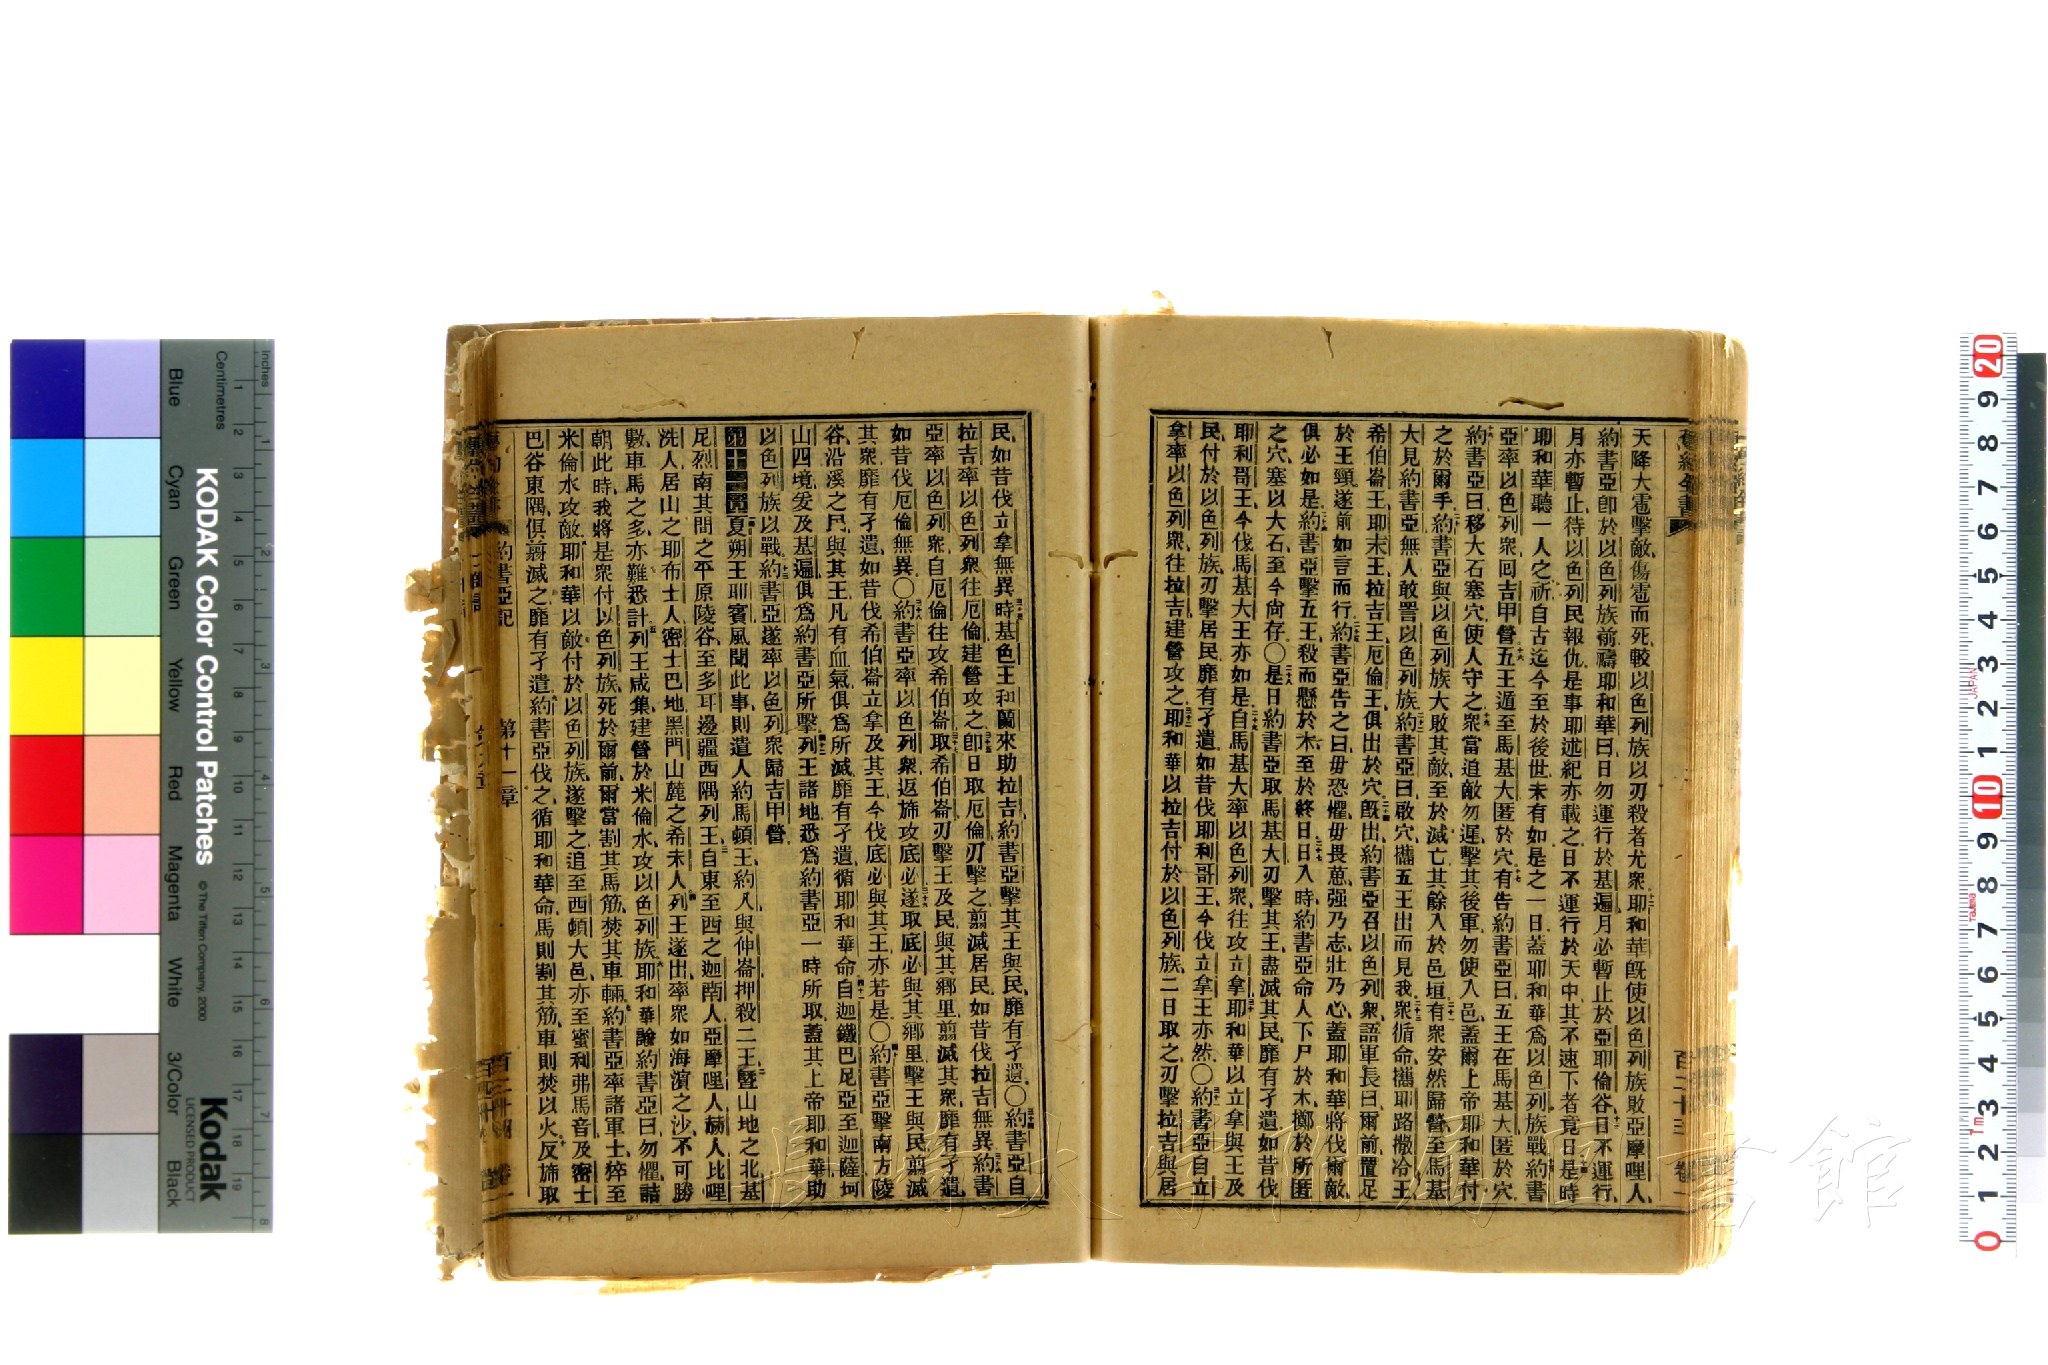 天降大雹擊敵傷雹而死較以色列族以刃殺者尤衆耶和華旣使以色列族敗亞摩哩人
約書亞卽於以色列族前禱耶和華曰日勿運行於基遍月必暫止於亞耶倫谷日不運行
月亦暫止待以色列民報仇是事耶述紀亦載之日不運行於天中其不速下者竟日是時
耶和華聽一人之祈自古迄今至於後世未有如是之一日蓋耶和華爲以色列族戰約書
亞率以色列衆回吉甲營五王遁至馬基大匿於穴有告約書亞曰五王在馬基大匿於穴
約書亞曰移大石塞穴使人守之衆當追敵勿遲擊其後軍勿使入邑蓋爾上帝耶和華付
之於爾手約書亞與以色列族大敗其敵至於滅亡其餘入於邑垣有衆安然歸營至馬基
大見約書亞無人敢詈以色列族約書亞曰啟穴攜五王出而見我衆循命攜耶路撒冷王
希伯崙王耶末王拉吉王厄倫王俱出於穴旣出約書亞召以色列衆語軍長曰爾前置足
於王頸遂前如言而行約書亞告之曰毋恐懼毋畏葸强乃志壯乃心蓋耶和華將伐爾敵
俱必如是約書亞擊五王殺而懸於木至於終日日入時約書亞命人下尸於木擲於所匿
之穴塞以大石至今尙存〇是日約書亞取馬基大刃擊其王盡滅其民靡有孑遺如昔伐
耶利哥王今伐馬基大王亦如是自馬基大率以色列衆往攻立拿耶和華以立拿與王及
民付於以色列族刃擊居民靡有孑遺如昔伐耶利哥王今伐立拿王亦然〇約書亞自立
拿率以色列衆往拉吉建營攻之耶和華以拉吉付於以色列族二日取之刃擊拉吉與居
舊約全書
百二十三
卷一
民如昔伐立拿無異時基色王和蘭來助拉吉約書亞擊其王與民靡有孑遺〇約書亞自
拉吉率以色列衆往厄倫建營攻之卽日取厄倫刃擊之翦滅居民如昔伐拉吉無異約書
亞率以色列衆自厄倫往攻希伯崙取希伯崙刃擊王及民與其鄉里翦滅其衆靡有孑遺
如昔伐厄倫無異〇約書亞率以色列衆返旆攻底必遂取底必與其鄉里擊王與民翦滅
其衆靡有孑遺如昔伐希伯崙立拿及其王今伐底必與其王亦若是〇約書亞擊南方陵
谷沿溪之民與其王凡有血氣俱爲所滅靡有孑遺循耶和華命自迦鐵巴尼亞至迦薩坷
山四境爰及基遍俱爲約書亞所擊列王諸地悉爲約書亞一時所取蓋其上帝耶和華助
以色列族以戰約書亞遂率以色列衆歸吉甲營
第十一章夏朔王耶賓風聞此事則遣人約馬頓王約人與伸崙押殺二王曁山地之北基
尼烈南其間之平原陵谷至多耳邊疆西隅列王自東至西之迦南人亞摩哩人赫人比哩
洗人居山之耶布士人密士巴地黑門山麓之希未人列王遂出率衆如海濱之沙不可勝
數車馬之多亦難悉計列王咸集建營於米倫水攻以色列族耶和華諭約書亞曰勿懼詰
朝此時我將是衆付以色列族死於爾前爾當割其馬筋焚其車輛約書亞率諸軍士猝至
米倫水攻敵耶和華以敵付於以色列族遂擊之追至西頓大邑亦至蜜利弗馬音及密士
巴谷東隅俱翦滅之靡有孑遺約書亞伐之循耶和華命馬則割其筋車則焚以火反旆取
約書亞記
第十一章
百二十四
卷一
館
KODAK Color Control Patches
© The Tiffen Company, 2000
Kodak
LICENSED PRODUCT
Inches
Centimetres
Blue
Cyan
Green
Yellow
Red
Magenta
White
3/Color
Black
JAPAN
Tajima
1m